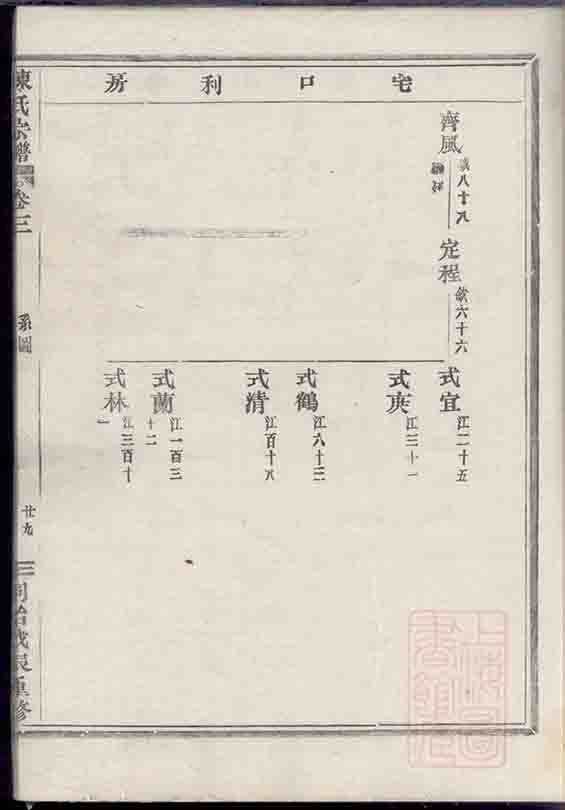 宅口利房
齊風
八十八
定程
六十六
式宜
江二十五
式庚
江三十一
式鶴
江六十三
式清
江百十八
式蘭
江一百三
十二
式林
江三百十
一
陳氏宗譜
卷三
系圖
廿九
同治戊辰重修
上海圖書館藏